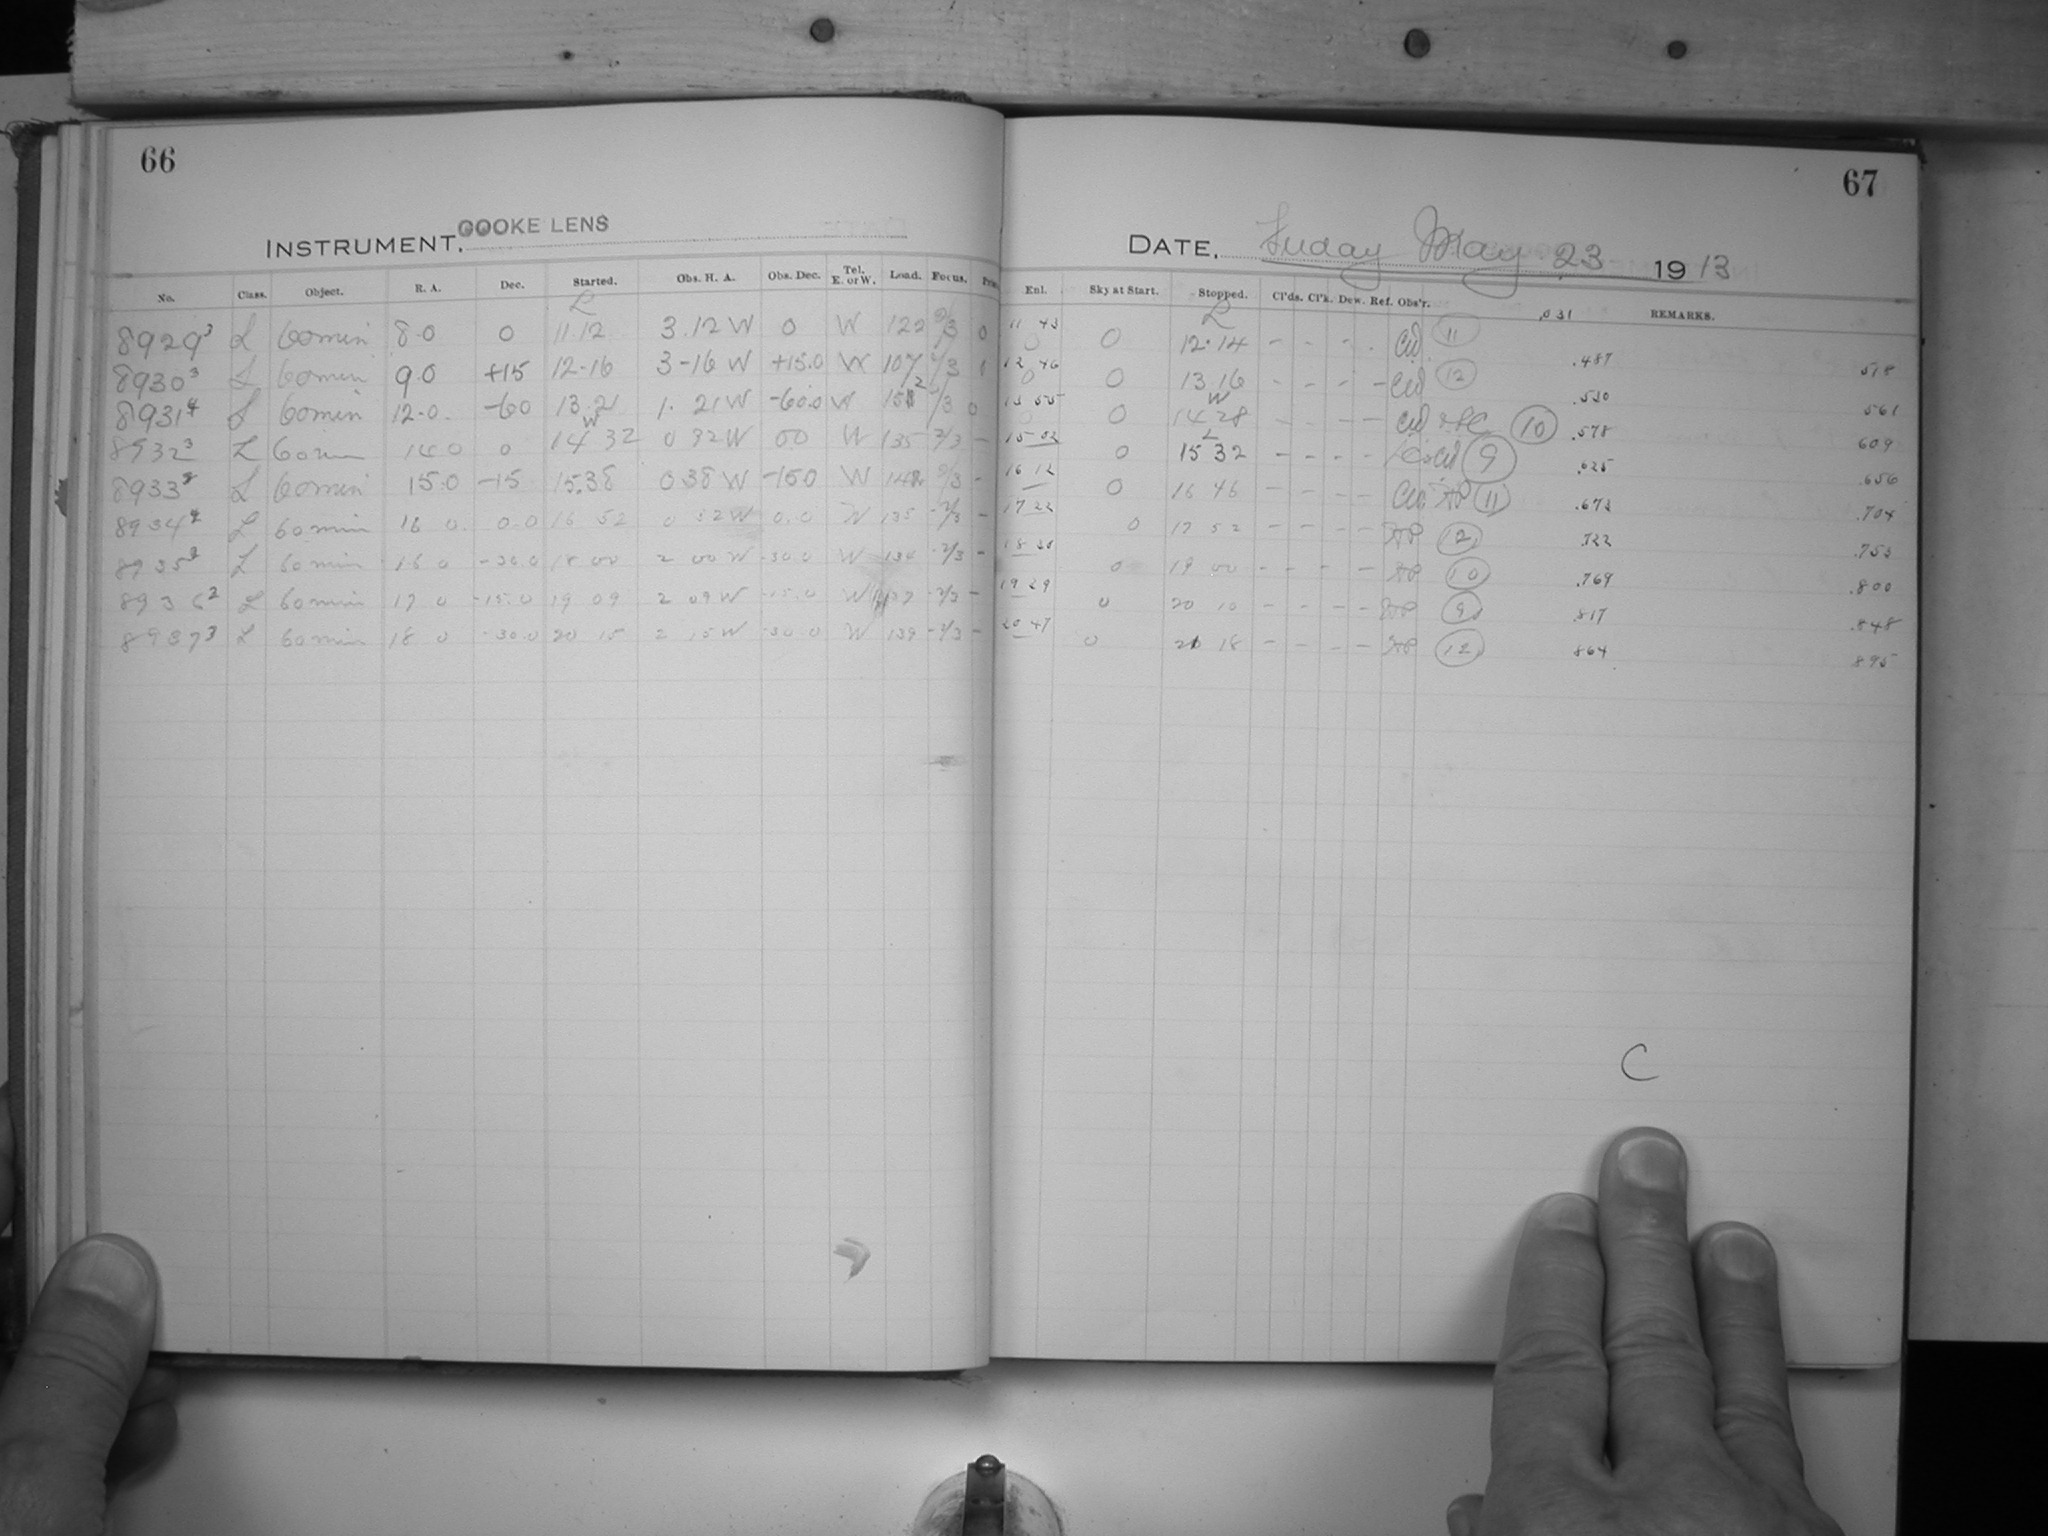 66
INSTRUMENT. COOKE LENS
No. Class. Object. R. A. Dec. Started. Obs. H. A. Obs. Dec. Tel. E. or W. Load. Focus.
L
8929 3 L 60 min 8.0 0 11 12 3.12 W 0 W 122 2/3 0
8930 3 L 60 min 9.0 +15 12-16 3-16 W +15.0 W 107 2/3
8931 L 60 min 12.0. -60 13.21 1. 21 W -60.0 W 2/3 0
W
8932 3 L 60 min 14 0 0 14 32 0 32 W 00 W 135 2/3 -
8933 L 60 min 15.0 -15 15.38 0 38 W -15.0 W 2/3 -
8934 L 60 min 16 0. 0.0 16 52 0 52 W 0.0 W 135 -2/3 -
8935 L 60 min 16 0 -30.0 18 00 2 00 W -30.0 W 134 -2/3 -
8936 2 L 60 min 17 0 -15.0 19 09 2 09 W -15.0 W 137 -2/3 -
8937 3 L 60 min 18 0 -30.0 20 15 2 15 W -30 0 W 139 -2/3 -
67
DATE. Friday May 23 1913
Enl. Sky at Start. Stopped. Cl'ds. Cl'k. Dew. Ref. Obs'r. .031 REMARKS.
L
11 43 0 0 12.14 - - - . 11 .487 .518
12 46 0 0 13 16 - - - - 12 .530 561
W
13 55 0 0 14 28 - - - - 10 .578 609
L
15-02 0 15 32 - - - - 9 .625 .656
16 12 0 16 46 - - - - 11 .673 .704
17 22 0 17 52 - - - - 12 .722 .753
18 30 0 19 00 - - - - 10 .769 .800
19 29 0 20 10 - - - - 9 .817 .848
20 47 0 21 18 - - - - 12 864 895
C